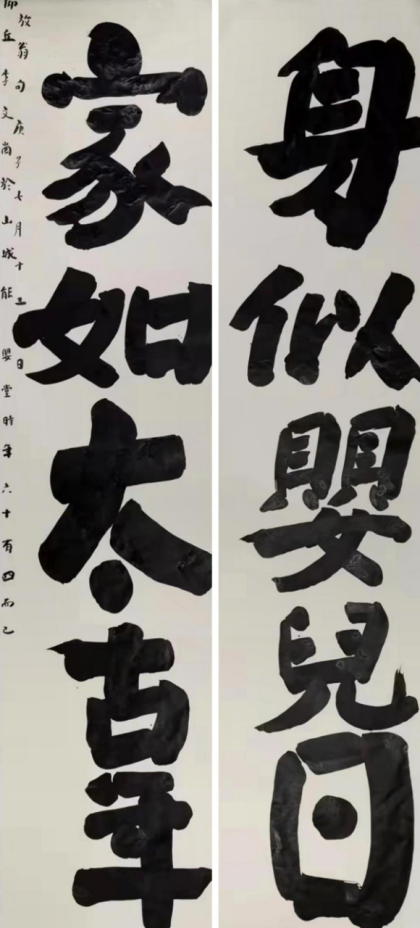 身似嬰兒日
家如太古年
放翁句庚子七月十五日
師丘李文崗於山城能嬰堂時年六十有四而已